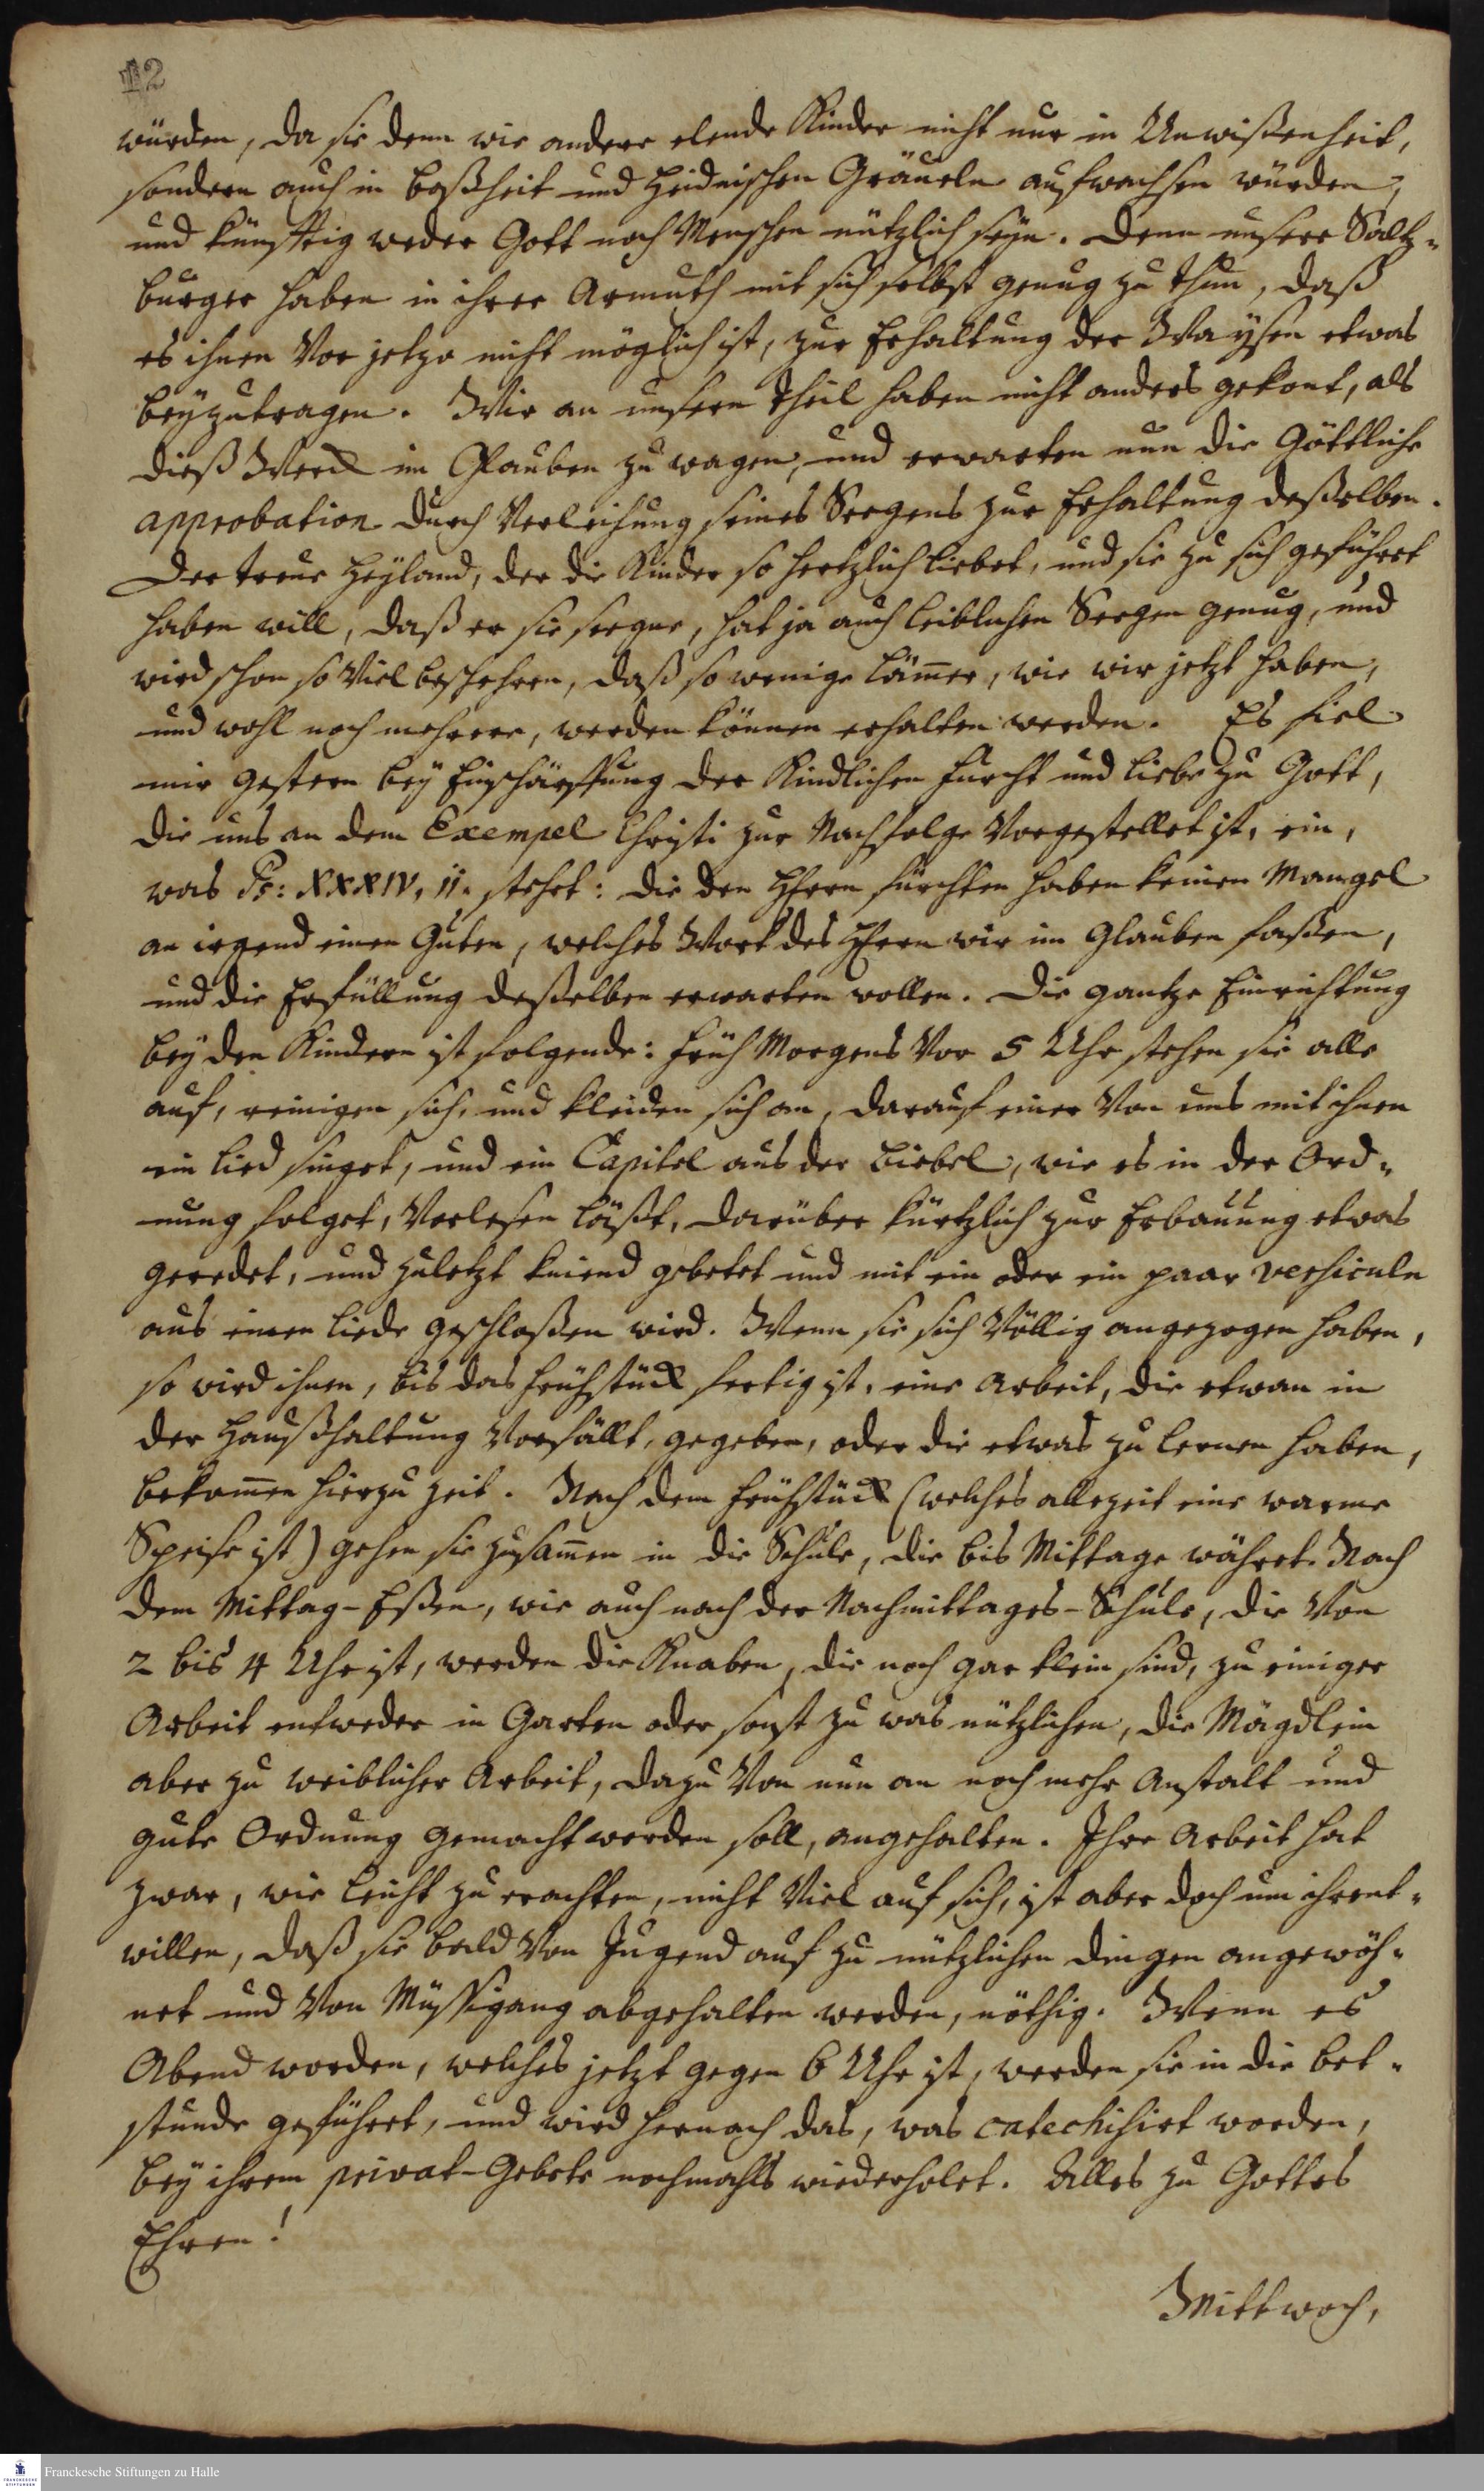 12
würden, da sie denn wie andere elende Kinder nicht nur in Unwißenheit,
sondern auch in Boßheit und Heidnischen Gräueln aufwachsen würden,
und künfftig weder Gott noch Menschen nützlich seyn. Denn unsere Saltz-
burger haben in ihrer Armuth mit sich selbst genug zu thun, daß
es ihnen Vor jetzo nicht möglich ist, zur Erhaltung der Waysen etwas
beyzutragen. Wir an unsern Theil haben nicht anders gekont, als
dieß Werck im Glauben zu wagen, und erwarten nun die Göttliche
approbation durch Verleihung seines Seegens zur Erhaltung deßelben.
Der treue Heyland, der die Kinder so hertzlich liebet, und sie zu sich geführt
haben will, daß er sie seegne, hat ja auch leiblichen Seegen genug, und
wird schon so Viel beschehren, daß so wenige Lämer, wie wir jetzt haben,
und wohl noch mehrere, werden können erhalten werden. Es fiel
mir gestern bey Einschärffung der Kindlichen Furcht und Liebe zu Gott,
die uns an dem Exempel Christi zur Nachfolge Vorgestellet ist, ein,
was Ps: XXXIV, 11. stehet: die den HErrn fürchten haben keinen Mangel
an irgend einem Guten, welches Wort des HErrn wir im Glauben faßen,
und die Erfüllung deßelben erwarten wollen. Die gantze Einrichtung
bey den Kindern ist folgende: Früh Morgens Vor 5 Uhr stehen sie alle
auf, reinigen sich, und kleiden sich an, darauf einer Von uns mit ihnen
ein Lied singet, und ein Capitel aus der Biebel, wie es in der Ord-
nung folget, Vorlesen läßt, darüber kürtzlich zur Erbauung etwas
geredet, und zuletzt kniend gebetet und mit ein oder ein paar versiculn
aus einem Liede geschloßen wird. Wenn sie sich Völlig angezogen haben,
so wird ihnen, bis das Frühstück fertig ist, eine Arbeit, die etwan in
der Haußhaltung Vorfällt, gegeben, oder die etwas zu lernen haben,
bekomen hierzu Zeit. Nach dem Frühstück (welches allezeit eine warme
Speise ist) gehen sie zusamen in die Schule, die bis Mittage währet. Nach
dem Mittag-Eßen, wie auch nach der Nachmittages-Schule, die Von
2 bis 4 Uhr ist, werden die Knaben, die noch gar klein sind, zu einiger
Arbeit entweder in Garten oder sonst zu was nützlichen, die Mägdlein
aber zu weiblicher Arbeit, dazu Von nun an noch mehr Anstalt und
gute Ordnung gemacht werden soll, angehalten. Ihre Arbeit hat
zwar, wie leicht zu erachten, nicht Viel auf sich, ist aber doch um ihrent-
willen, daß sie bald Von Jugend auf zu nützlichen Dingen angewöh-
net und Von Müssigang abgehalten werden, nöthig. Wenn es
Abend worden, welches jetzt gegen 6 Uhr ist, werden sie in die Bet-
stunde geführet, und wird hernach das, was catechisirt worden,
bey ihrem privat-Gebete nochmahls wiederholet. Alles zu Gottes
Ehren!
Mittwoch,
Franckesche Stiftungen zu Halle
FRANCKESCHE
STIFTUNGEN